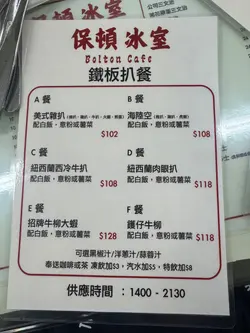 公司三文治
保頓冰室
Bolton Cafe
鐵板扒餐
A 餐
美式雜扒
配白飯，意粉或薯菜
$102
B 餐
海陸空
配白飯，意粉或薯菜
$108
C 餐
紐西蘭西冷牛扒
配白飯，意粉或薯菜
$108
D 餐
紐西蘭肉眼扒
配白飯，意粉或薯菜
$118
E 餐
招牌牛柳大蝦
配白飯，意粉或薯菜
$128
F 餐
鑊仔牛柳
配白飯，意粉或薯菜
$118
可選黑椒汁/洋蔥汁/蒜蓉汁
奉送咖啡或茶 凍飲加$3，汽水加$5，特飲加$8
供應時間：1400 - 2130